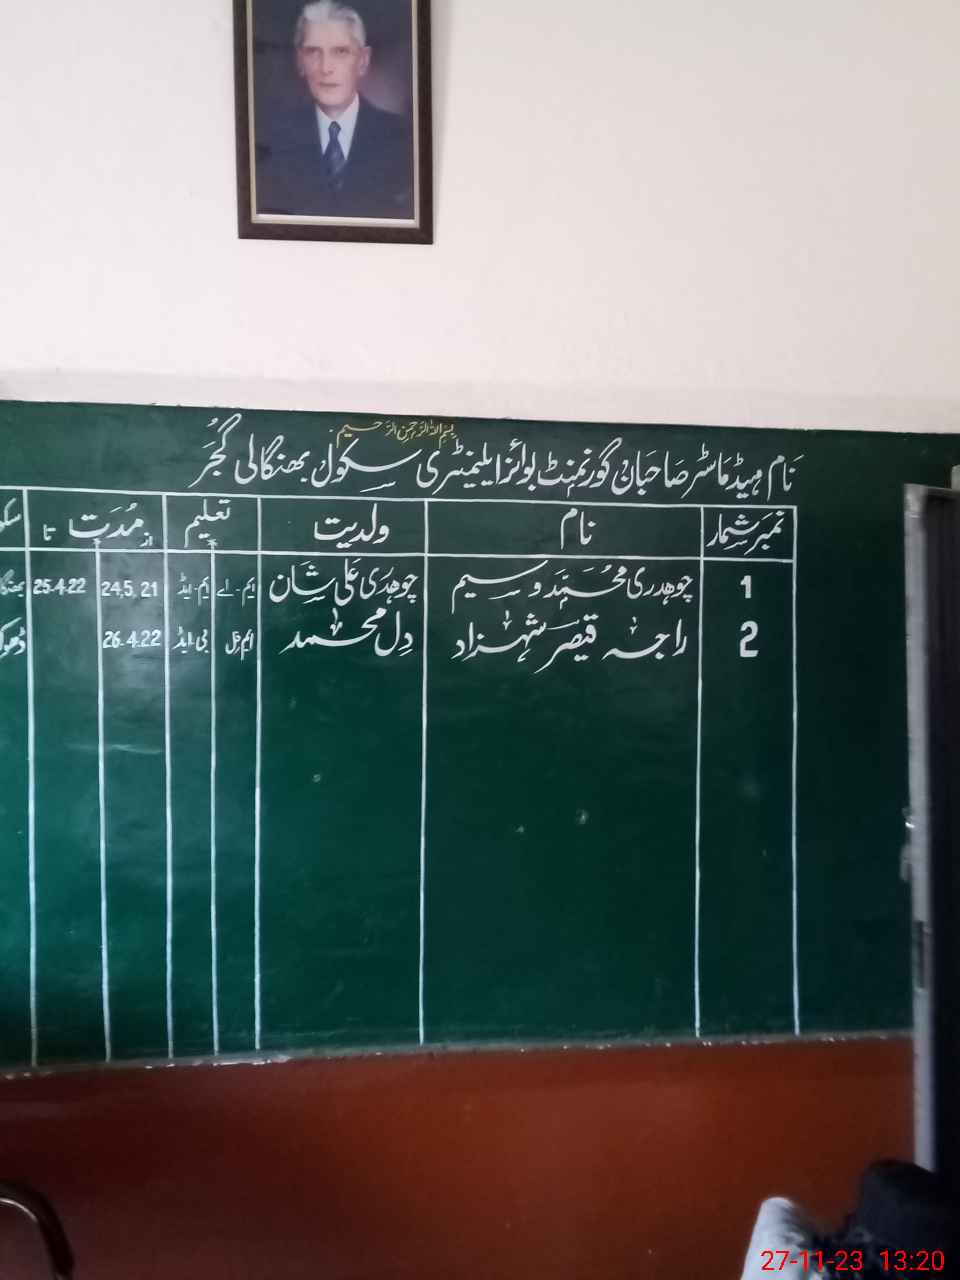 بسم اللہ الرحمن الرحیم
نام ہیڈ ماسٹر صاحبان گورنمنٹ بوائز ایلیمنٹری سکول بھنگالی گجر
نمبر شمار نام ولدیت تعلیم مدت از تا
1 چوھدری محمد وسیم چوھدری علی شان ایم-اے ایم-ایڈ 24.5.21 25.4.22
2 راجہ قیصر شہزاد دل محمد ایم فل بی-ایڈ 26.4.22
27-11-23 13:20